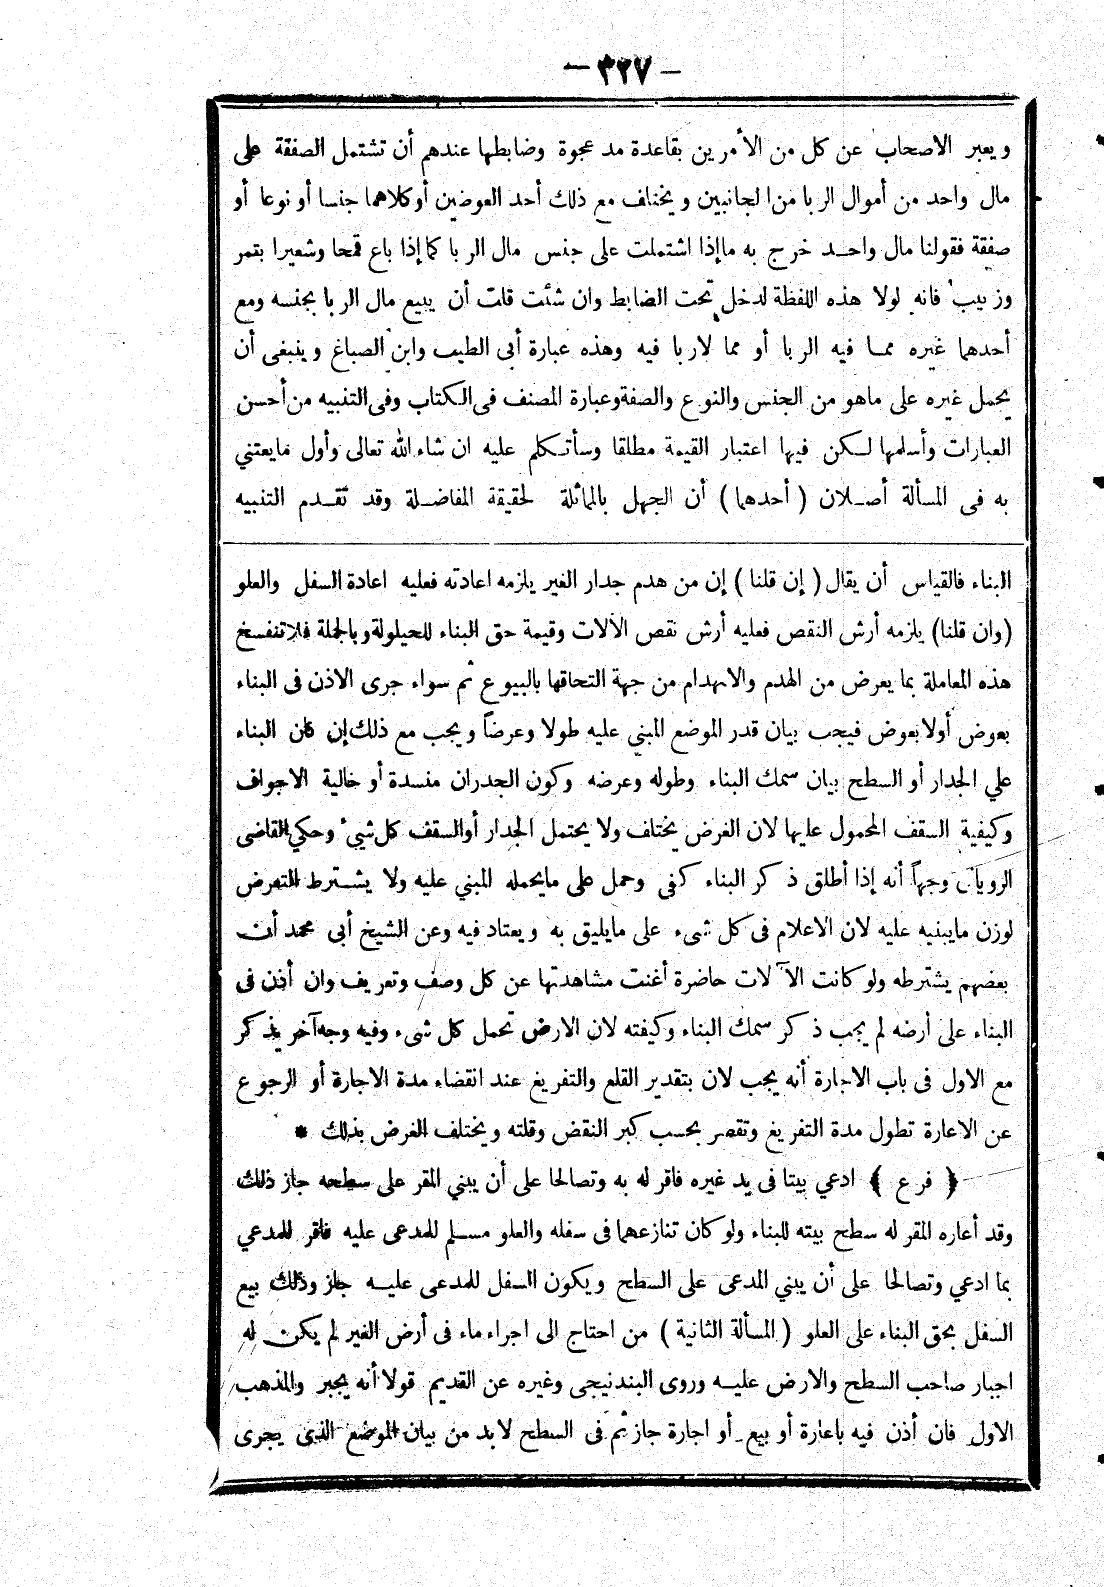 — ٣٢٧ —
ويعبر الاصحاب عن كل من الأمرين بقاعدة مد عجوة وضابطها عندهم أن تشتمل الصفقة على
مال واحد من أموال الربا من الجانبين ويختلف مع ذلك أحد العوضين أوكلاهما جنسا أو نوعا أو
صفقة فقولنا مال واحد خرج به ماإذا اشتملت على جنس مال الربا كماإذا باع قمحا وشعيرا بتمر
وزبيب فانه لولا هذه اللفظة لدخل تحت الضابط وان شئت قلت أن يبيع مال الربا بجنسه ومع
أحدهما غيره مما فيه الربا أو مما لاربا فيه وهذه عبارة أبى الطيب وابن الصباغ وينبغى أن
يحمل غيره على ماهو من الجنس والنوع والصفة وعبارة المصنف فى الكتاب وفى التنبيه من أحسن
العبارات وأسلمها لكن فيها اعتبار القيمة مطلقا وسأتكلم عليه ان شاء الله تعالى وأول مايعتني
به فى المسألة أصلان ( أحدهما ) أن الجهل بالمماثلة لحقيقة المفاضلة وقد تقدم التنبيه
البناء فالقياس أن يقال ( إن قلنا ) إن من هدم جدار الغير يلزمه اعادته فعليه اعادة السفل والعلو
(وان قلنا) يلزمه أرش النقص فعليه أرش نقص الآلات وقيمة حق البناء للحيلولة وبالجملة فلا تنفسخ
هذه المعاملة بما يعرض من الهدم والانهدام من جهة التحاقها بالبيوع ثم سواء جرى الاذن فى البناء
بعوض أولابعوض فيجب بيان قدر الموضع المبني عليه طولا وعرضاً ويجب مع ذلك إن كان البناء
علي الجدار أو السطح بيان سمك البناء وطوله وعرضه وكون الجدران منسدة أو خالية الاجواف
وكيفية السقف المحمول عليها لان الغرض يختلف ولا يحتمل الجدار أوالسقف كل شيء وحكي القاضى
الرويانى وجهاً أنه إذا أطلق ذكر البناء كفى وحمل على مايحمله المبني عليه ولا يشترط التعرض
لوزن مايبنيه عليه لان الاعلام فى كل شىء على مايليق به ويعتاد فيه وعن الشيخ أبى محمد أن
بعضهم يشترطه ولو كانت الآلات حاضرة أغنت مشاهدتها عن كل وصف وتعريف وان أذن فى
البناء على أرضه لم يجب ذكر سمك البناء وكيفته لان الارض تحمل كل شىء وفيه وجه آخر يذكر
مع الاول فى باب الاجارة أنه يجب لان بتقدير القلع والتفريغ عند انقضاء مدة الاجارة أو الرجوع
عن الاعارة تطول مدة التفريغ وتقصر بحسب كبر النقض وقلته ويختلف الغرض بذلك *
﴿ فرع ﴾ ادعي بيتا فى يد غيره فاقر له به وتصالحا على أن يبني المقر على سطحه جاز ذلك
وقد أعاره المقر له سطح بيته للبناء ولو كان تنازعهما فى سفله والعلو مسلم للمدعى عليه فاقر للمدعي
بما ادعي وتصالحا على أن يبني المدعى على السطح ويكون السفل للمدعى عليه جاز وذلك بيع
السفل بحق البناء على العلو ( المسألة الثانية ) من احتاج الى اجراء ماء فى أرض الغير لم يكن له
اجبار صاحب السطح والارض عليه وروى البندنيجى وغيره عن القديم قولا أنه يجبر والمذهب
الاول فان أذن فيه باعارة أو بيع أو اجارة جاز ثم فى السطح لابد من بيان الموضع الذى يجرى